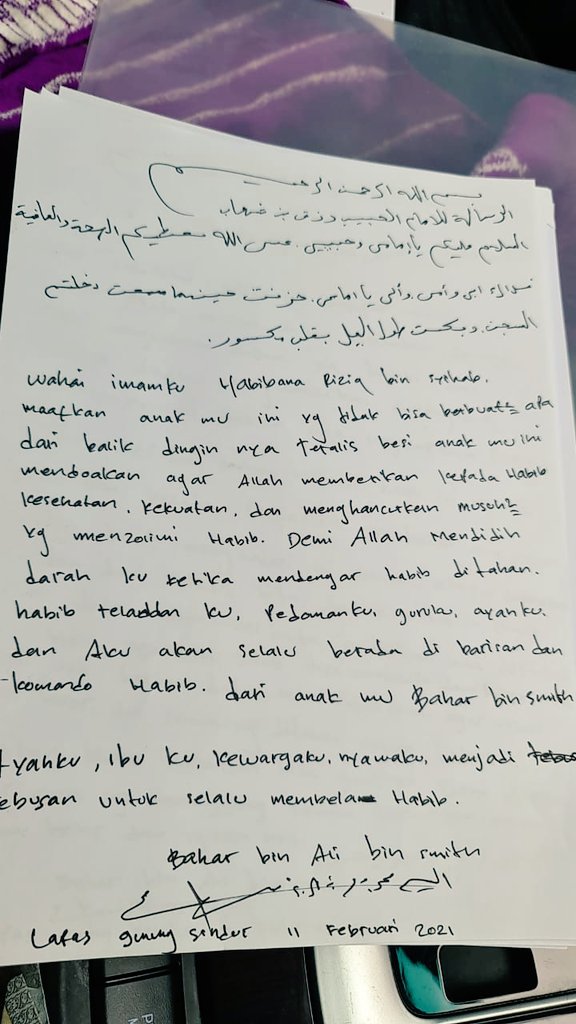 بسم الله الرحمن الرحيم
الرسالة للامام الحبيب رزق بن شهاب
السليم عليكم يا إمامي وحبيبي. عسى الله يعطيكم الصحة والعافية
فداك ابي وأمي وأنى يا امامي. حزنت حينما سمعت دخلتم
السجن. وبكيت طول اليل بقلب مكسور.
wahai imamku Habibana Riziq bin syihab.
maafkan anak mu ini yg tidak bisa berbuat2 apa
dari balik dingin nya teralis besi anak mu ini
mendoakan agar Allah memberikan kepada Habib
kesehatan. kekuatan, dan menghancurkan musoh2
yg menzolimi Habib. Demi Allah Mendidih
darah ku ketika mendengar habib ditahan.
habib teladan ku, Pedomanku, guruku, ayahku.
dan Aku akan selalu berada di barisan dan
komando Habib. dari anak mu Bahar bin smith
Ayahku, ibu ku, kewargaku, nyawaku, menjadi
tebusan untuk selalu membela Habib.
Bahar bin Ali bin smith
Lapas gunung sindur 11 Februari 2021